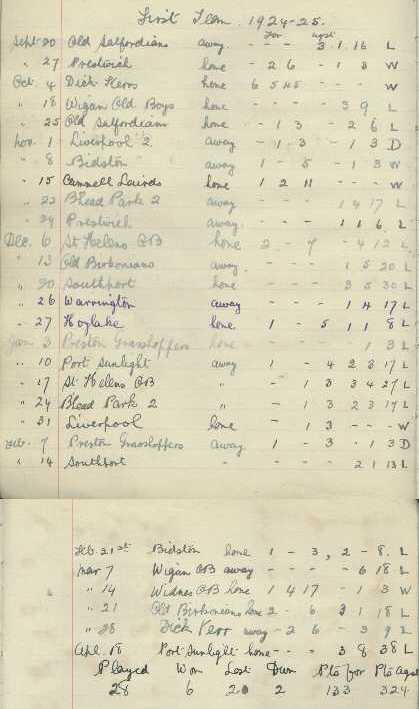 First Team 1924-25.
For agst
Sept 20 Old Salfordians away - - - 3 1 16 L
" 27 Prestwich home - 2 6 - 1 3 W
Oct. 4 Dick Kerrs home 6 5 45 - - - W
" 18 Wigan Old Boys home - - - - 3 9 L
" 25 Old Salfordians home - 1 3 - 2 6 L
Nov. 1 Liverpool 2 away - 1 3 - 1 3 D
" 8 Bidston away 1 - 5 - 1 3 W
" 15 Cammell Lairds home 1 2 11 - - - W
" 22 Bhead Park 2 away - - - 1 4 17 L
" 29 Prestwich away - - - 1 1 6 L
Dec. 6 St Helens OB home 2 - 7 - 4 12 L
" 13 Old Birkonians away - - - 1 5 20 L
" 20 Southport home - - - 3 5 30 L
" 26 Warrington away - - - 1 4 17 L
" 27 Hoylake home 1 - 5 1 1 8 L
Jan 3 Preston Grasshoppers home - - - 1 3 L
" 10 Port Sunlight away 1 - 4 2 3 17 L
" 17 St Helens OB " - 1 3 3 4 27 L
" 24 Bhead Park 2 " - 1 3 2 3 17 L
" 31 Liverpool home - 1 3 - - - W
Feb. 7 Preston Grasshoppers away 1 - 3 - 1 3 D
" 14 Southport - - - - 2 1 13 L
Feb. 21st Bidston home 1 - 3, 2 - 8. L
Mar 7 Wigan OB away - - - - 6 18 L
" 14 Widnes OB home 1 4 17 - 1 3 W
" 21 Old Birkonians home 2 - 6 3 1 18 L
" 28 Dick Kerr away - 2 6 - 3 9 L
Apl. 18 Port Sunlight home - - - 3 8 38 L
Played Won Lost Dwn Pts for Pts Agst
28 6 20 2 133 324